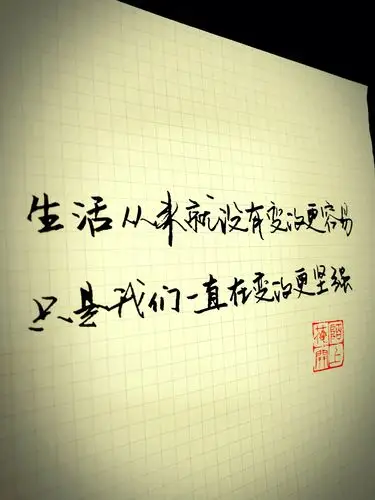 生活从来就没有变得更容易
只是我们一直在变得更坚强
陌上
開